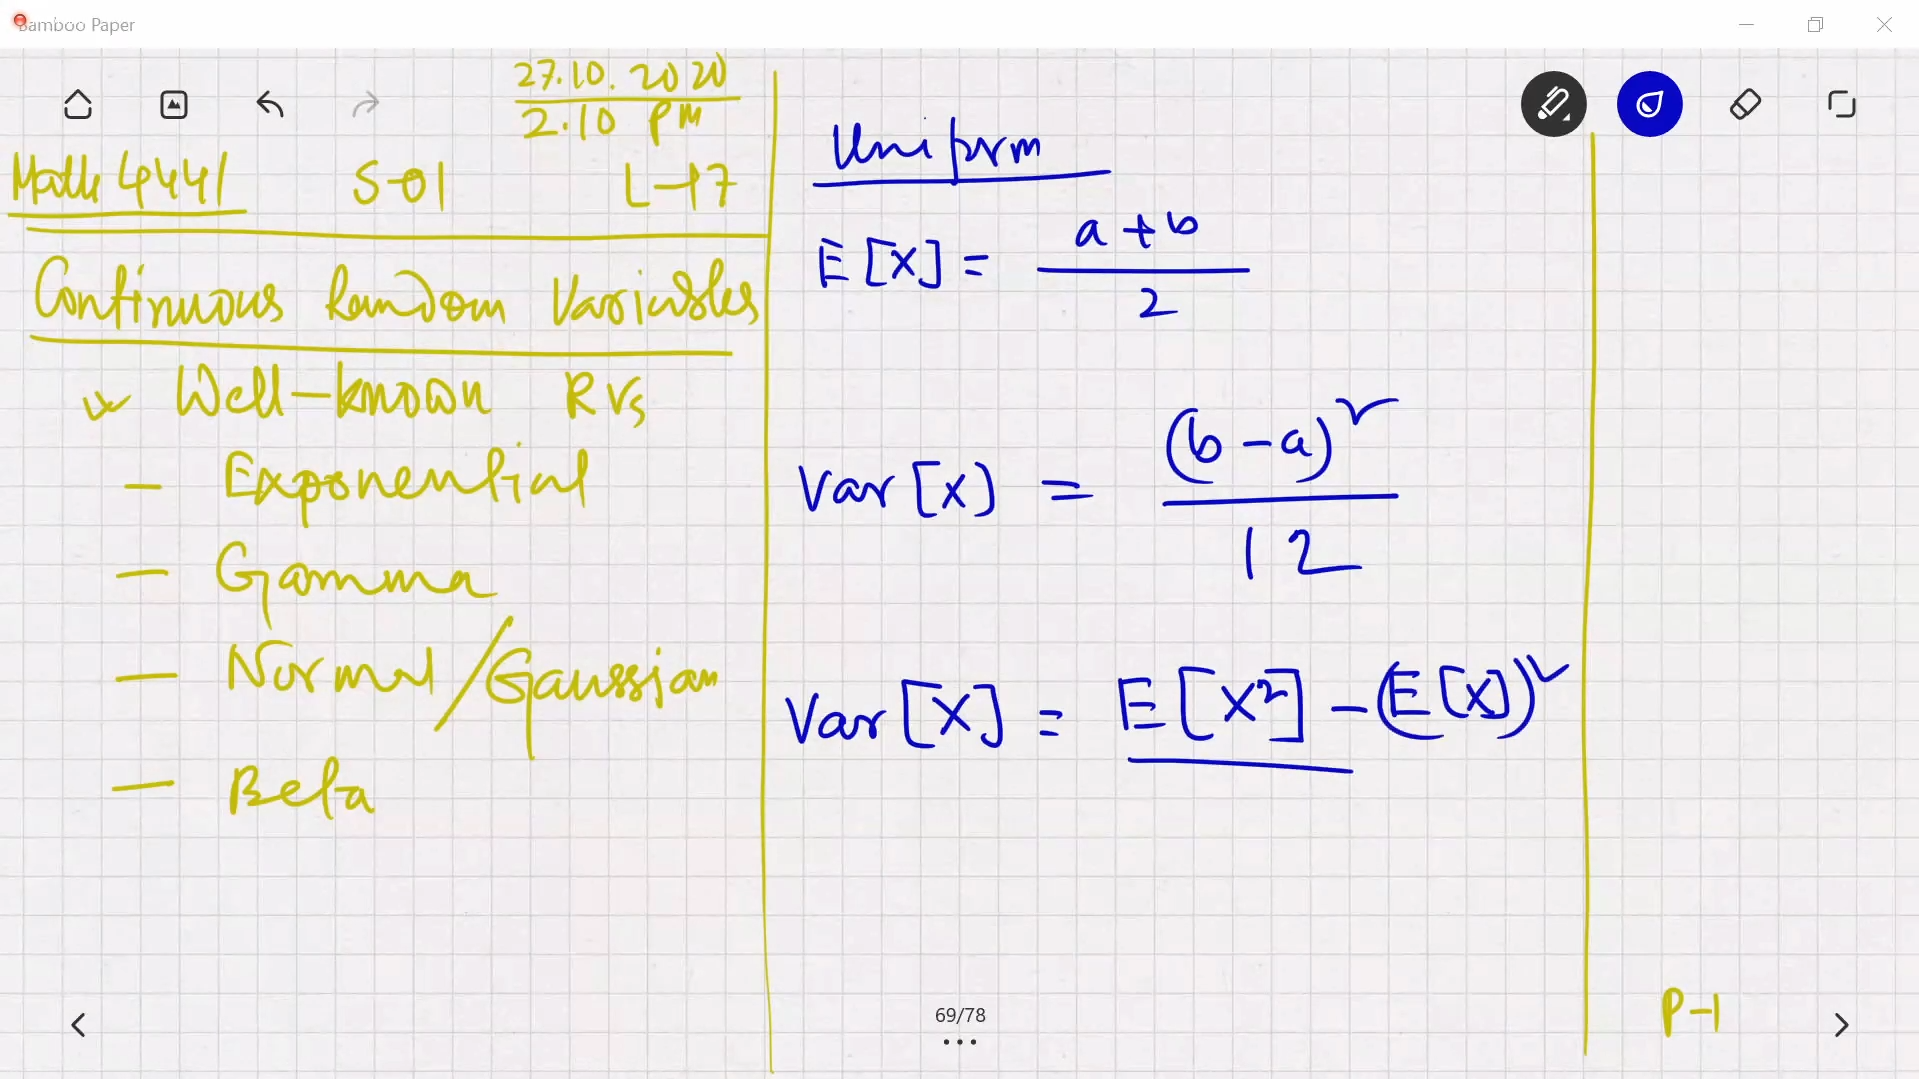 Bamboo Paper
27.10.2020
2.10 PM
Math 4441 S-01 L-17
Continuous Random Variables
Well-known RVs
— Exponential
— Gamma
— Normal/Gaussian
— Beta
Uniform
E[X] = a+b
2
Var[X] = (b-a)²
12
Var[X] = E[X²] - (E[X])²
69/78
P-1